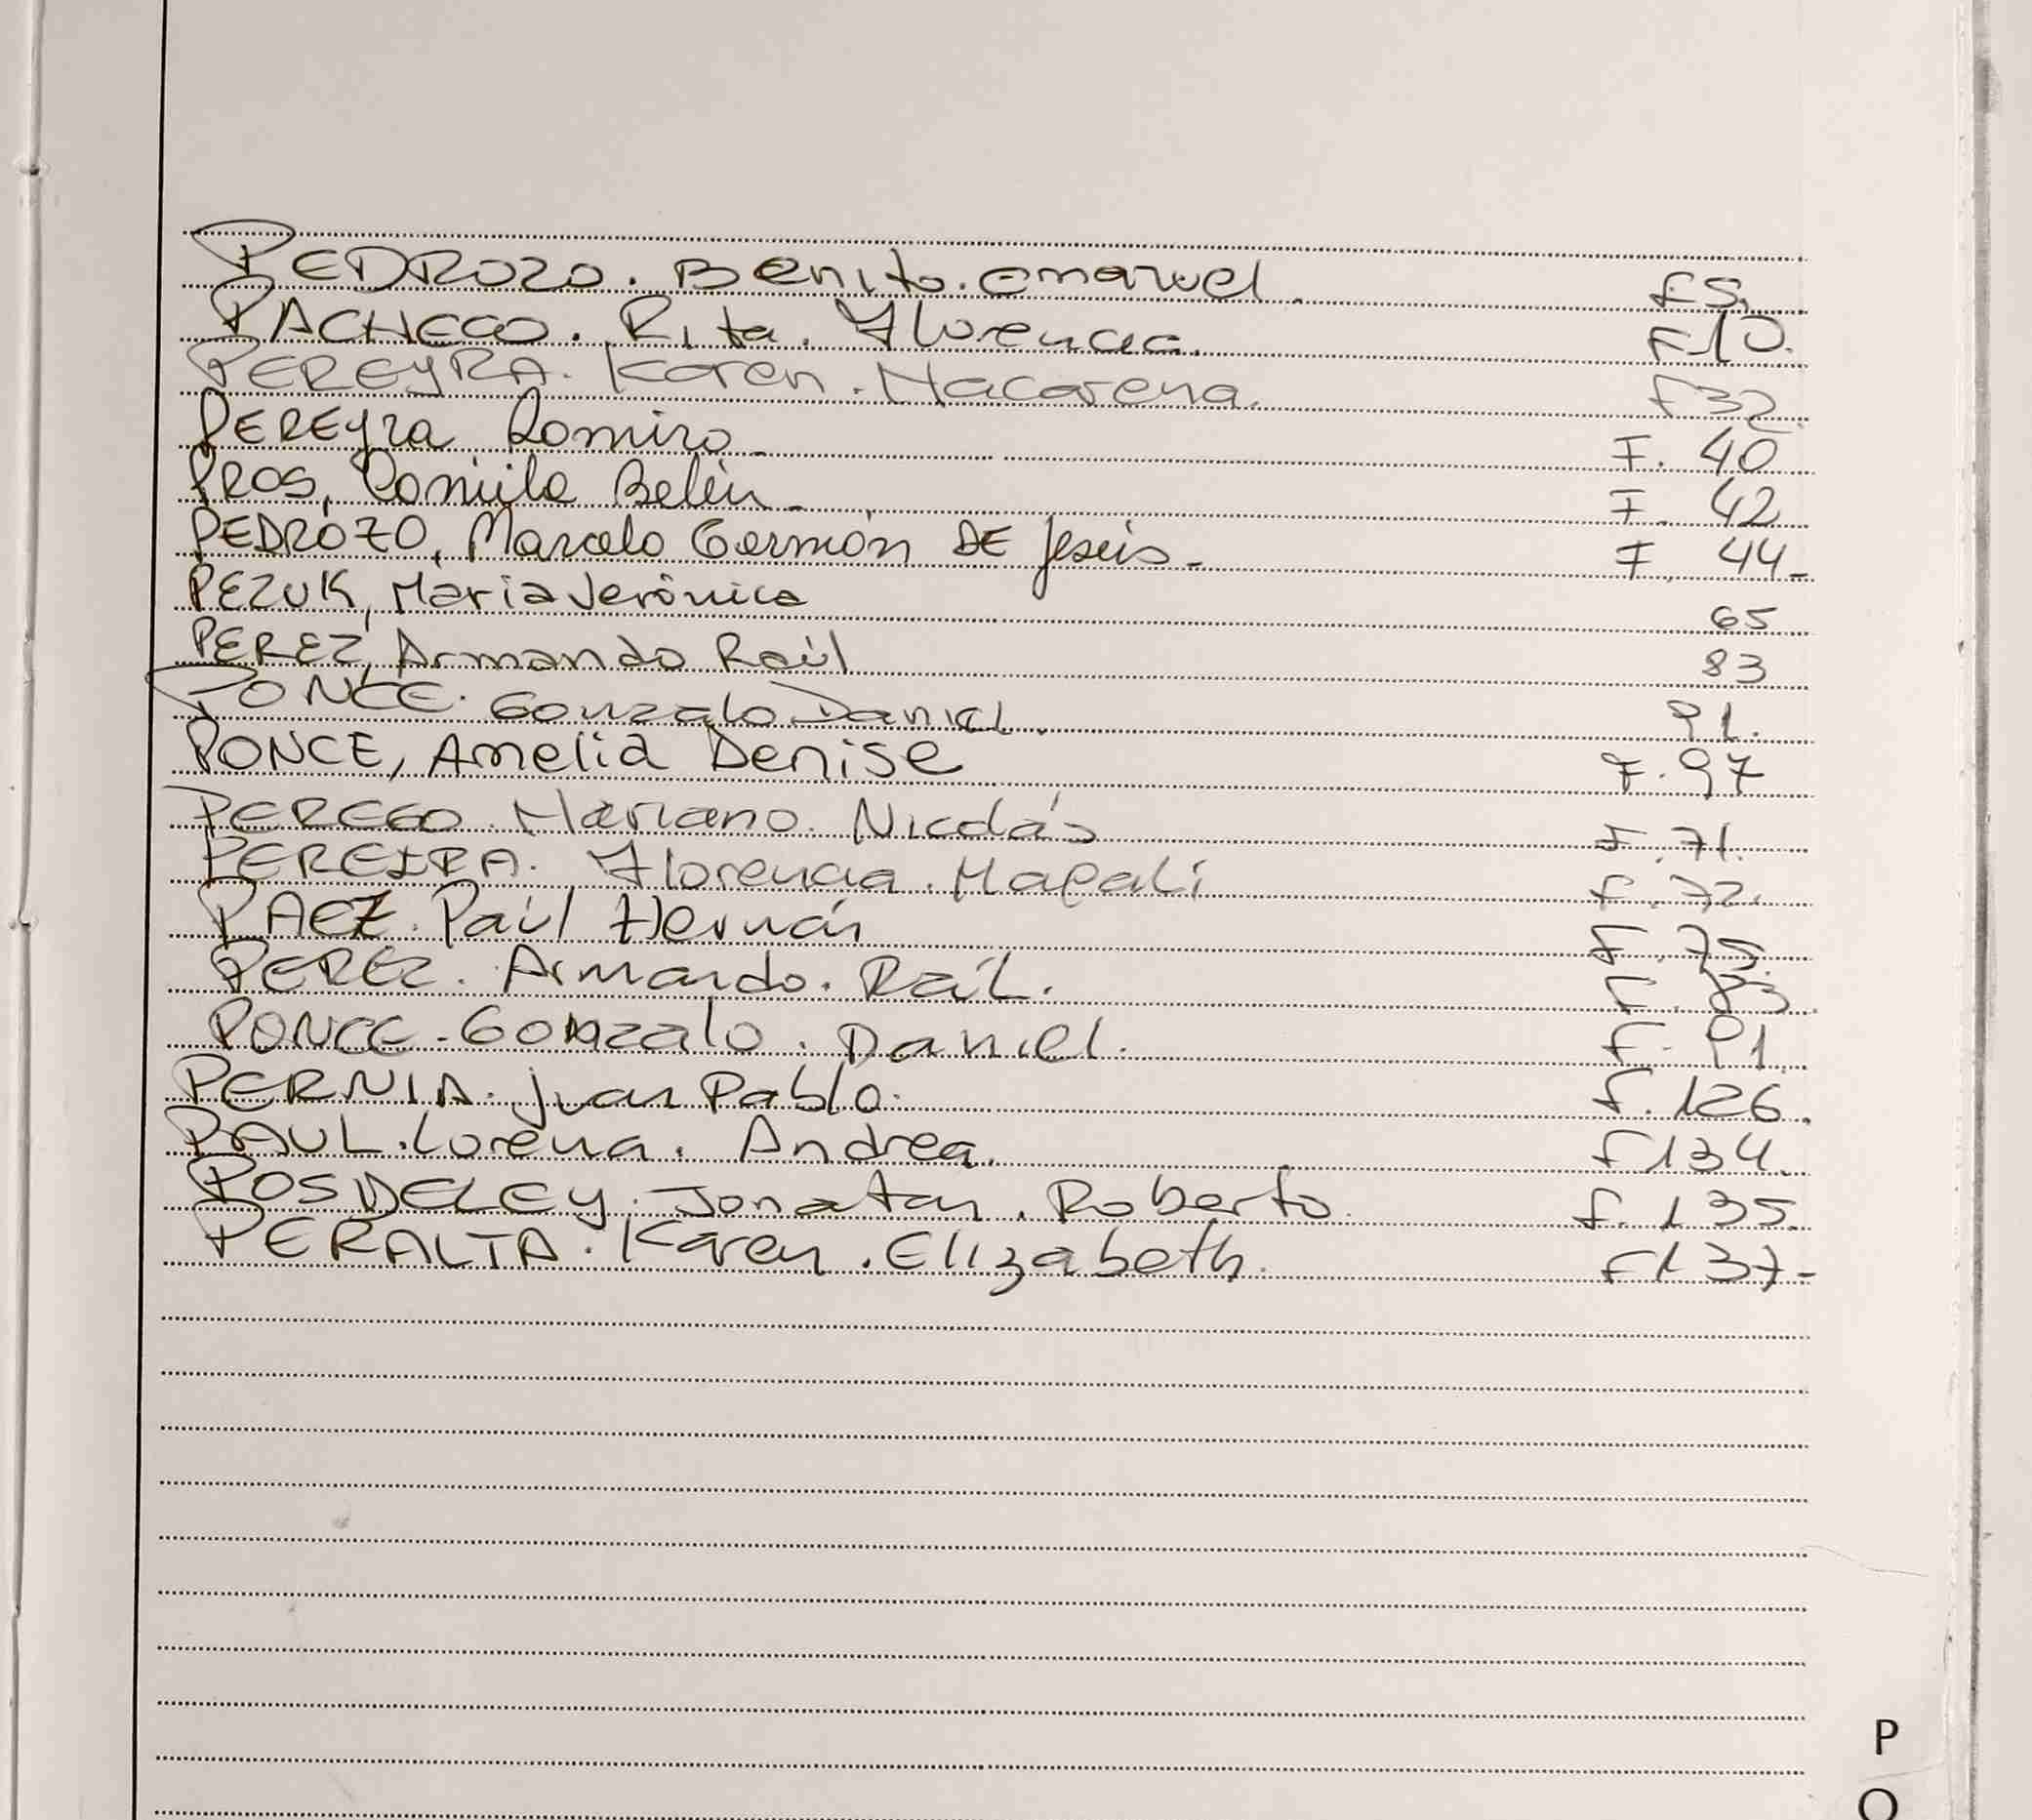 PEDROZO. Benito. Emanuel. F5.
PACHECO. Rita. Florencia. F10.
PEREYRA. Karen. Macarena. F32.
PEREYra Romiro. F. 40
PROS, Comila Belén. F. 42
PEDROZO, Marcelo Germán DE Jesús- F 44-
PEZUK, María Verónica 65
PEREZ, Armando Raúl 83
PONCE. Gonzalo Daniel. 91.
PONCE, Amelia Denise F. 97
PEREGO. Mariano. Nicolás F. 71.
PEREIRA. Florencia. Magali F. 72.
PAEZ. Paúl Hernán F. 75.
PEREZ. Armando. Raúl. F. 83.
PONCE. Gonzalo. Daniel. F. 91
PERNIA. Juan Pablo. F. 126.
PAUL. Lorena. Andrea. F134.
POSDELEY. Jonatan. Roberto. F. 135.
PERALTA. Karen. Elizabeth. F137-
P
Q